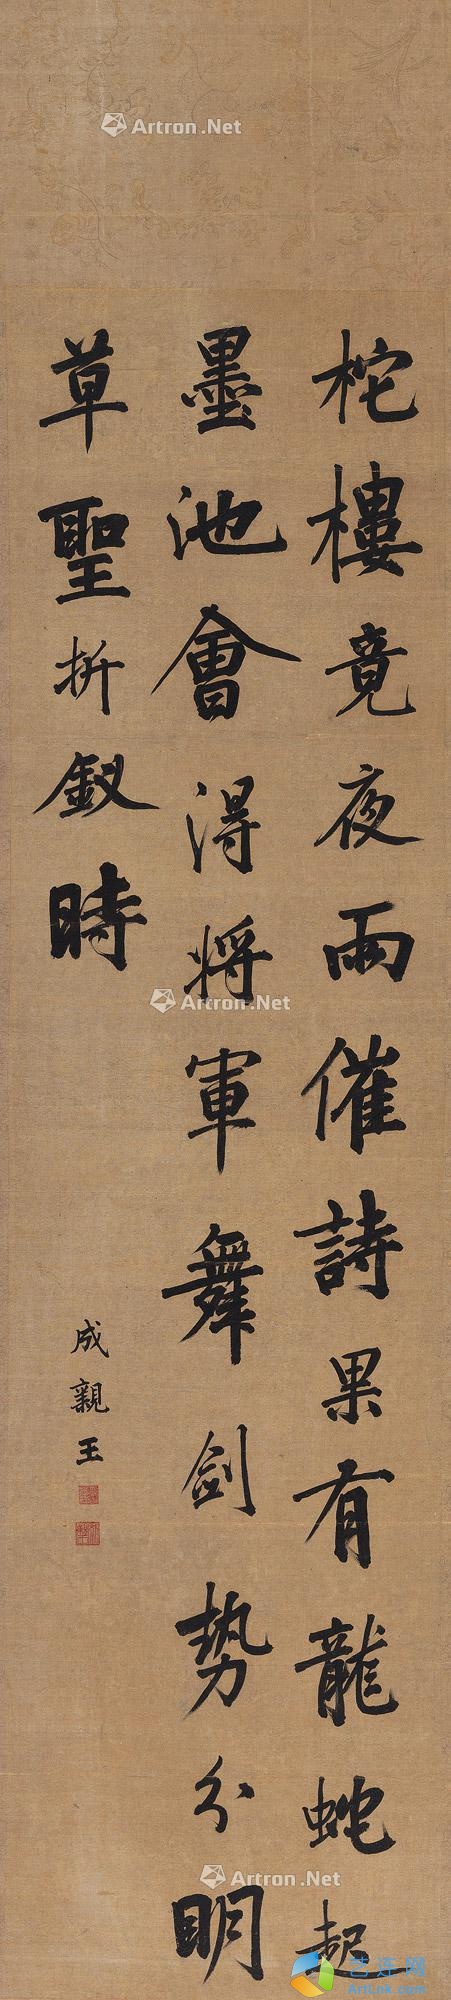 柁樓竟夜雨催詩果有龍蛇起
墨池會得將軍舞劍勢分明
草聖折釵時
成親王
Artron.Net
Artron.Net
Artron.Net
艺连网
ArtLink.com